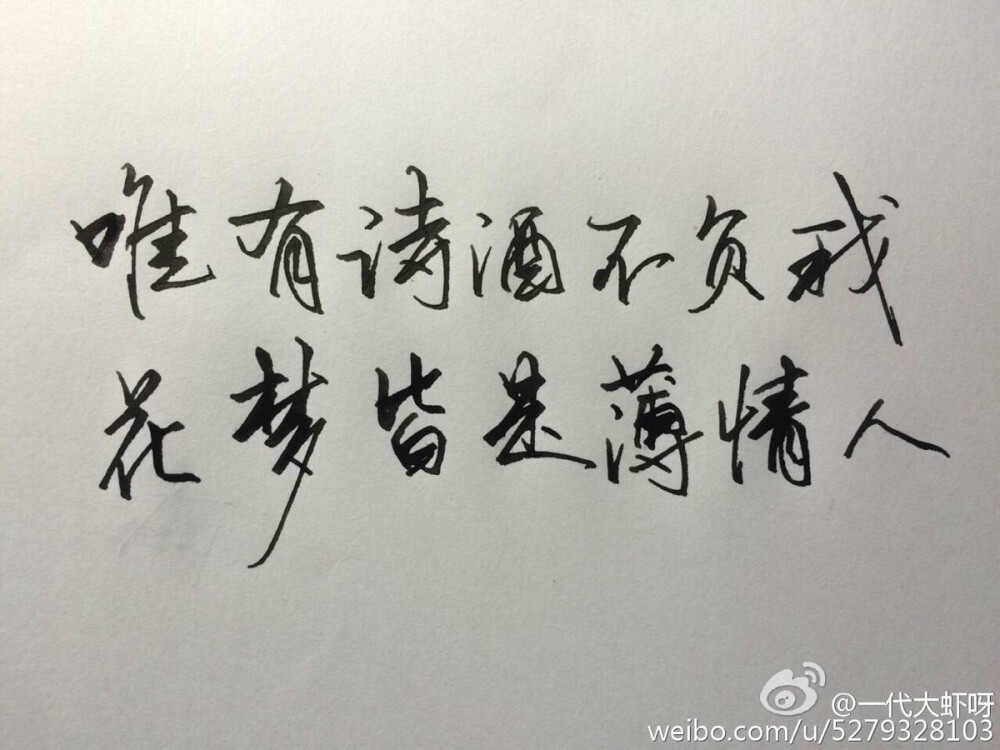 唯有诗酒不负我
花梦皆是薄情人
@一代大虾呀
weibo.com/u/5279328103